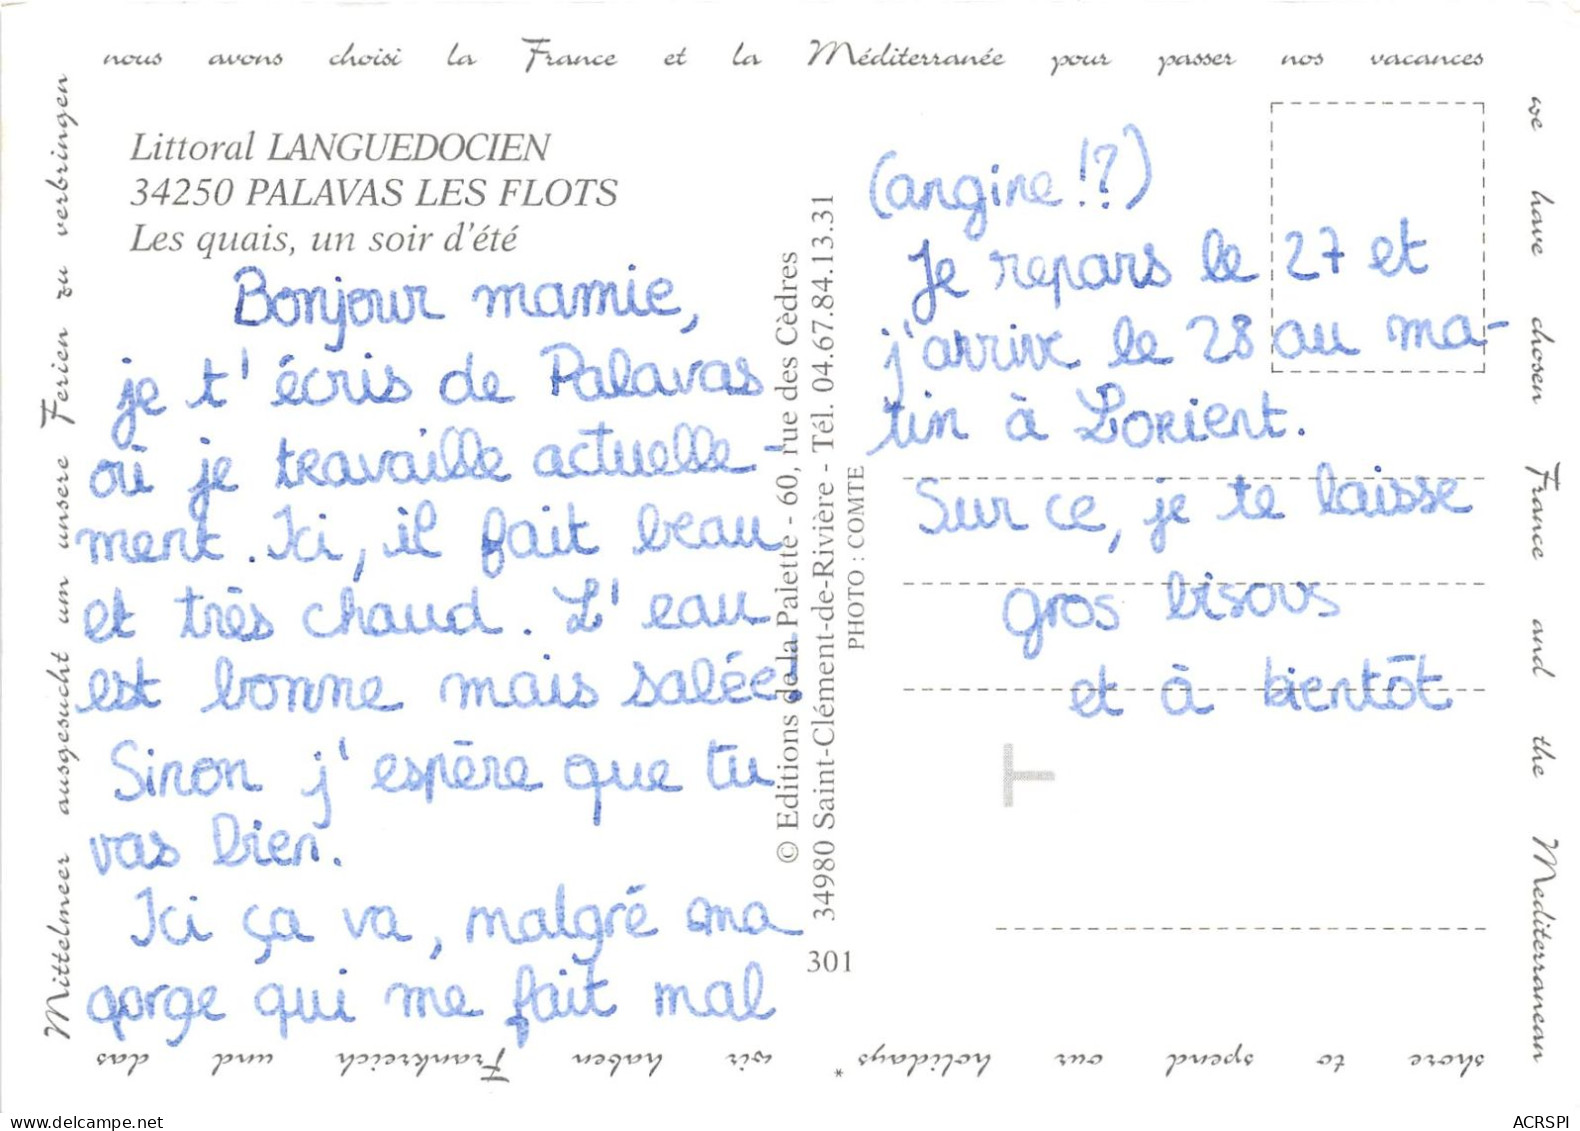 nous avons choisi la France et la Méditerranée pour passer nos vacances
we have chosen France and the Mediterranean
shore to spend our holidays *
das Frankreich und wir haben
Mittelmeer ausgesucht um unsere Ferien zu verbringen
Littoral LANGUEDOCIEN
34250 PALAVAS LES FLOTS
Les quais, un soir d'été
Bonjour mamie,
je t'écris de Palavas
où je travaille actuelle-
ment. Ici, il fait beau
et très chaud. L'eau
est bonne mais salée!
Sinon j'espère que tu
vas bien.
Ici ça va, malgré ma
gorge qui me fait mal
© Editions de la Palette - 60, rue des Cèdres
34980 Saint-Clément-de-Rivière - Tél. 04.67.84.13.31
PHOTO : COMTE
301
(angine!?)
Je repars le 27 et
j'arrive le 28 au ma-
tin à Lorient.
Sur ce, je te laisse
gros bisous
et à bientôt
T
ACRSPI